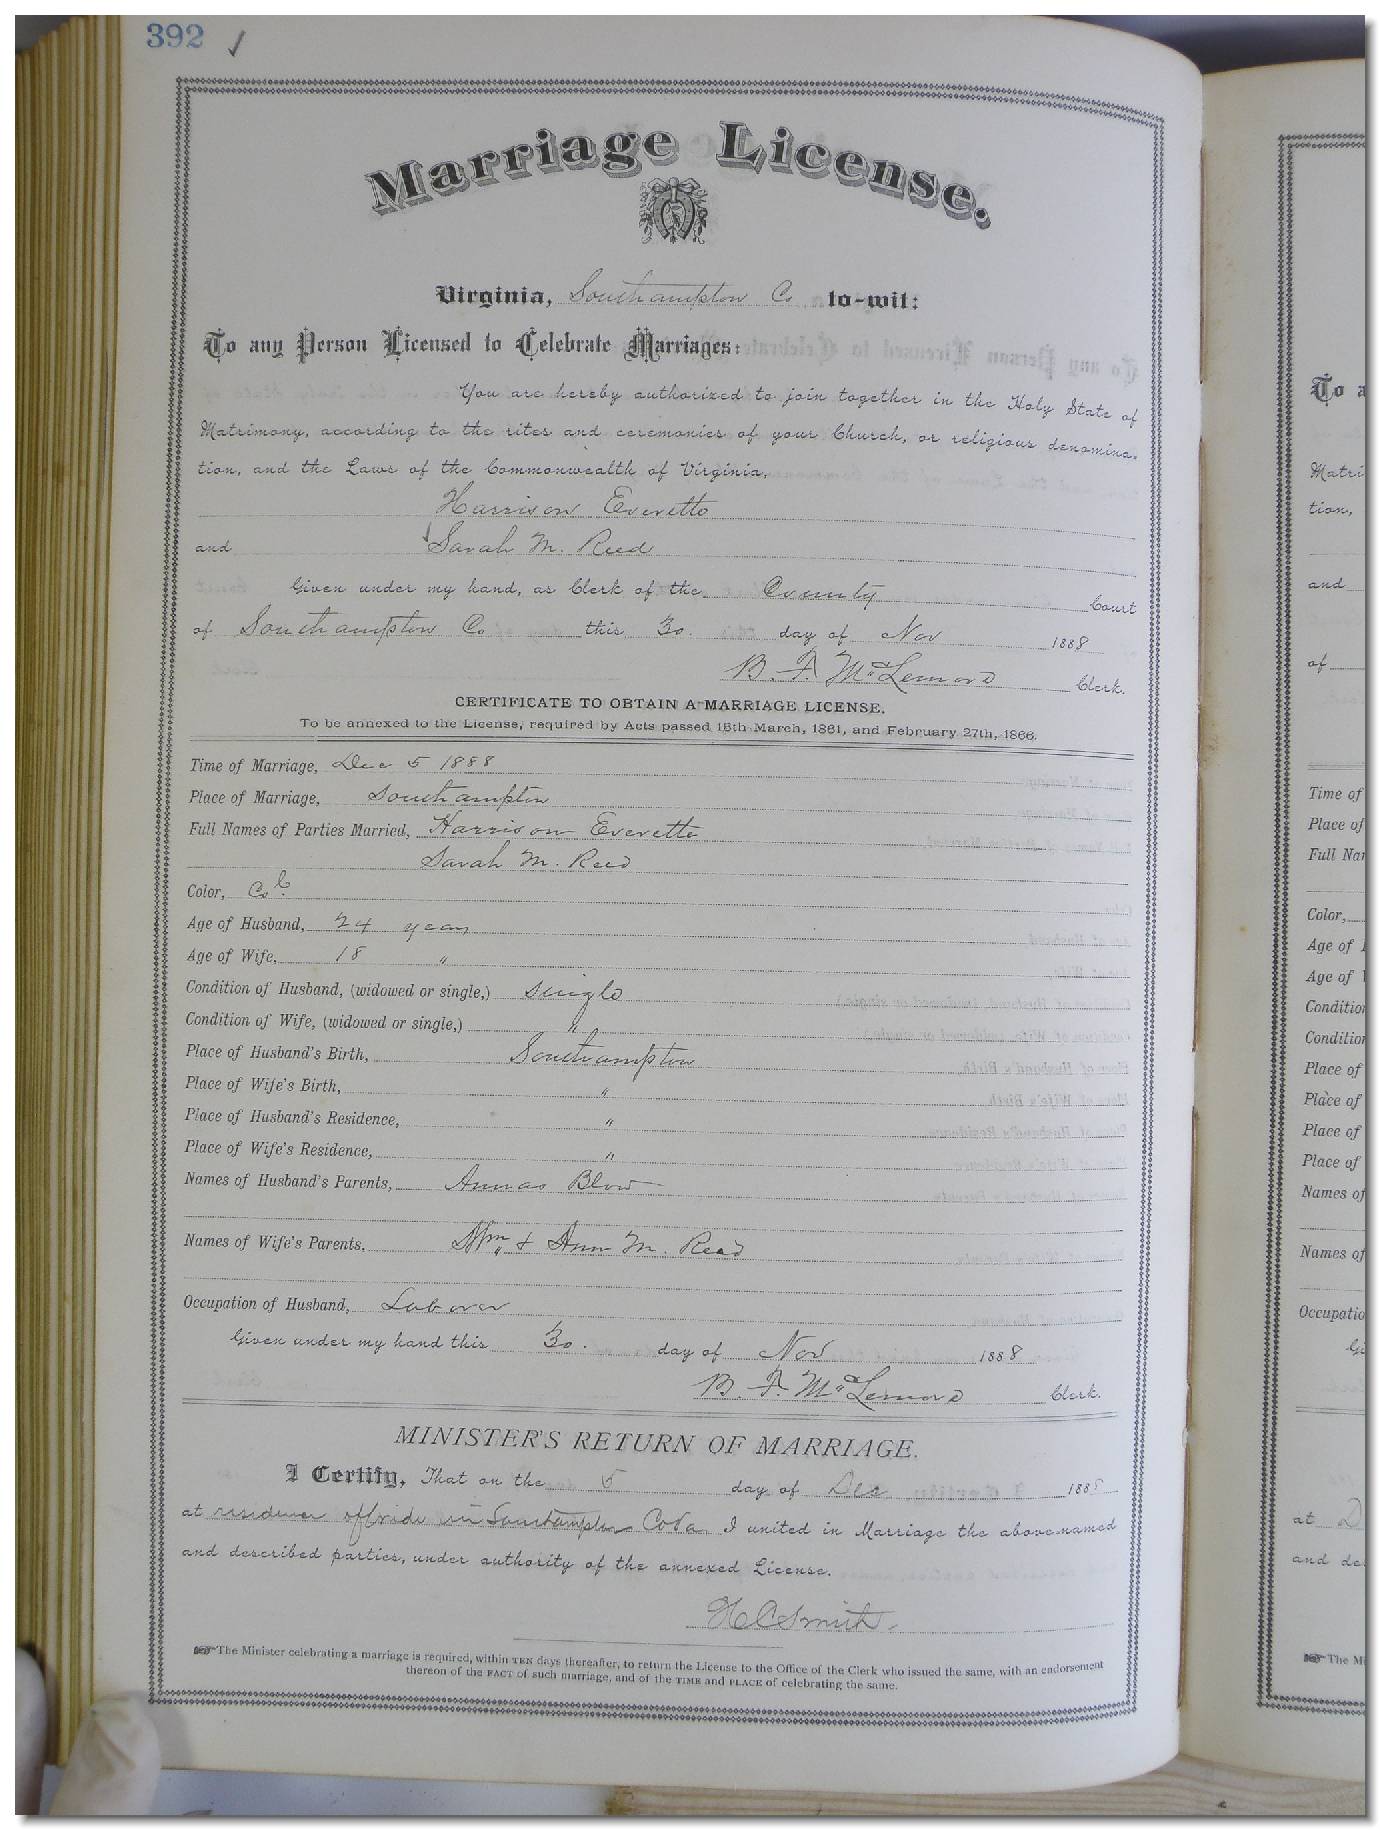 392 ✓
Marriage License.
Virginia, Southampton Co to-wit:
To any Person Licensed to Celebrate Marriages:
You are hereby authorized to join together in the Holy State of
Matrimony, according to the rites and ceremonies of your Church, or religious denomina-
tion, and the Laws of the Commonwealth of Virginia,
Harrison Everette
and Sarah M. Reed
Given under my hand, as Clerk of the County Court
of Southampton Co this 30. day of Nov 1888
B. F. McLemore Clerk.
CERTIFICATE TO OBTAIN A MARRIAGE LICENSE.
To be annexed to the License, required by Acts passed 15th March, 1861, and February 27th, 1866.
Time of Marriage, Dec 5 1888
Place of Marriage, Southampton
Full Names of Parties Married, Harrison Everette
Sarah M. Reed
Color, Col.
Age of Husband, 24 years
Age of Wife, 18 "
Condition of Husband, (widowed or single,) single
Condition of Wife, (widowed or single,) "
Place of Husband's Birth, Southampton
Place of Wife's Birth, "
Place of Husband's Residence, "
Place of Wife's Residence, "
Names of Husband's Parents, Blow
Names of Wife's Parents, Wm & Ann M. Reed
Occupation of Husband, Laborer
Given under my hand this 30. day of Nov 1888
B. F. McLemore Clerk.
MINISTER'S RETURN OF MARRIAGE.
I Certify, That on the 5 day of Dec 1888
at residence of bride in Southampton Co Va I united in Marriage the above-named
and described parties, under authority of the annexed License.
H C Smith.
The Minister celebrating a marriage is required, within TEN days thereafter, to return the License to the Office of the Clerk who issued the same, with an endorsement
thereon of the FACT of such marriage, and of the TIME and PLACE of celebrating the same.
To a
Matri
tion,
and
of
Time of
Place of
Full Nam
Color,
Age of
Age of
Condition
Condition
Place of
Place of
Place of
Place of
Names of
Names of
Occupatio
at D
and de
The Mi